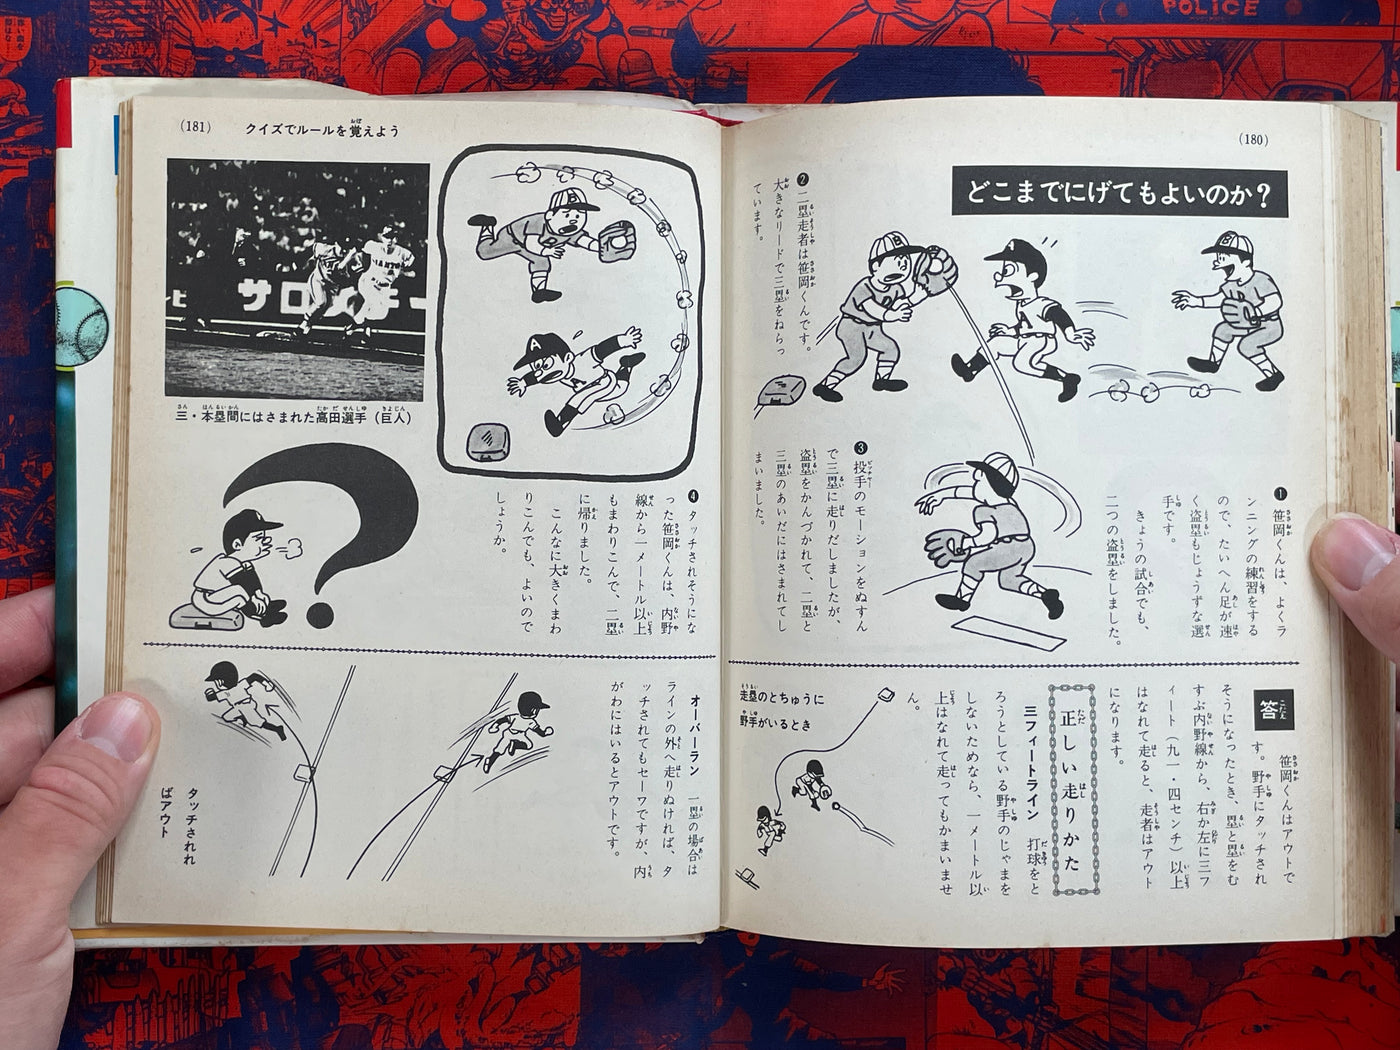 (180)
どこまでにげてもよいのか?
❶ 笹岡くんは、よくラ
ンニングの練習をする
ので、たいへん足が速
く盗塁もじょうずな選
手です。
きょうの試合でも、
二つの盗塁をしました。
❷ 二塁走者は笹岡くんです。
大きなリードで三塁をねらっ
ています。
❸ 投手のモーションをぬすん
で三塁に走りだしましたが、
盗塁をかんづかれて、二塁と
三塁のあいだにはさまれてし
まいました。
答
笹岡くんはアウトで
す。野手にタッチされ
そうになったとき、塁と塁をむ
すぶ内野線から、右か左に三フ
ィート(九一・四センチ)以上
はなれて走ると、走者はアウト
になります。
正しい走りかた
三フィートライン 打球をと
ろうとしている野手のじゃまを
しないためなら、一メートル以
上はなれて走ってもかまいませ
ん。
走塁のとちゅうに
野手がいるとき
(181)
クイズでルールを覚えよう
サロメチー
三・本塁間にはさまれた高田選手(巨人)
❹ タッチされそうにな
った笹岡くんは、内野
線から一メートル以上
もまわりこんで、二塁
に帰りました。
こんなに大きくまわ
りこんでも、よいので
しょうか。
オーバーラン 一塁の場合は
ラインの外へ走りぬければ、タ
ッチされてもセーフですが、内
がわにはいるとアウトです。
タッチされれ
ばアウト
POLICE